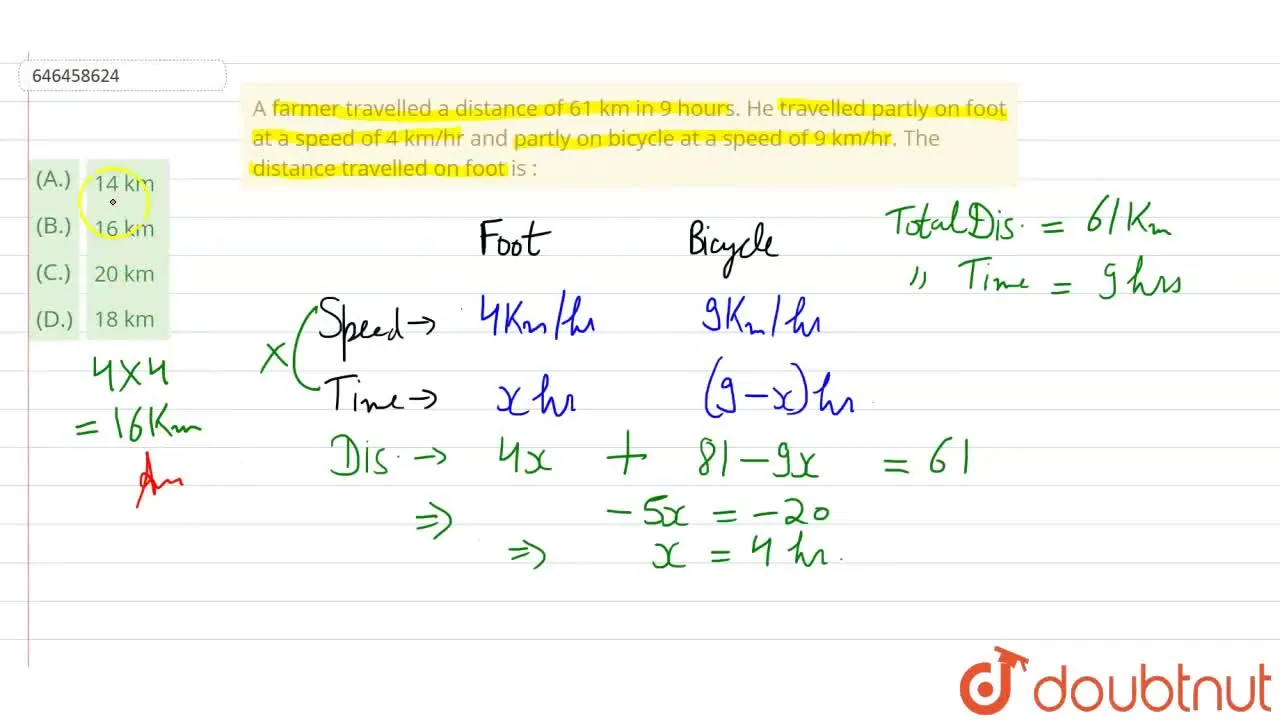 646458624
A farmer travelled a distance of 61 km in 9 hours. He travelled partly on foot
at a speed of 4 km/hr and partly on bicycle at a speed of 9 km/hr. The
distance travelled on foot is :
(A.) 14 km
(B.) 16 km
(C.) 20 km
(D.) 18 km
4×4
= 16Km
Ans
Foot Bicycle
Total Dis. = 61Km
〃 Time = 9hrs
× Speed → 4Km/hr 9Km/hr
Time → x hr (9-x)hr
Dis. → 4x + 81-9x = 61
⇒ -5x = -20
⇒ x = 4 hr.
doubtnut